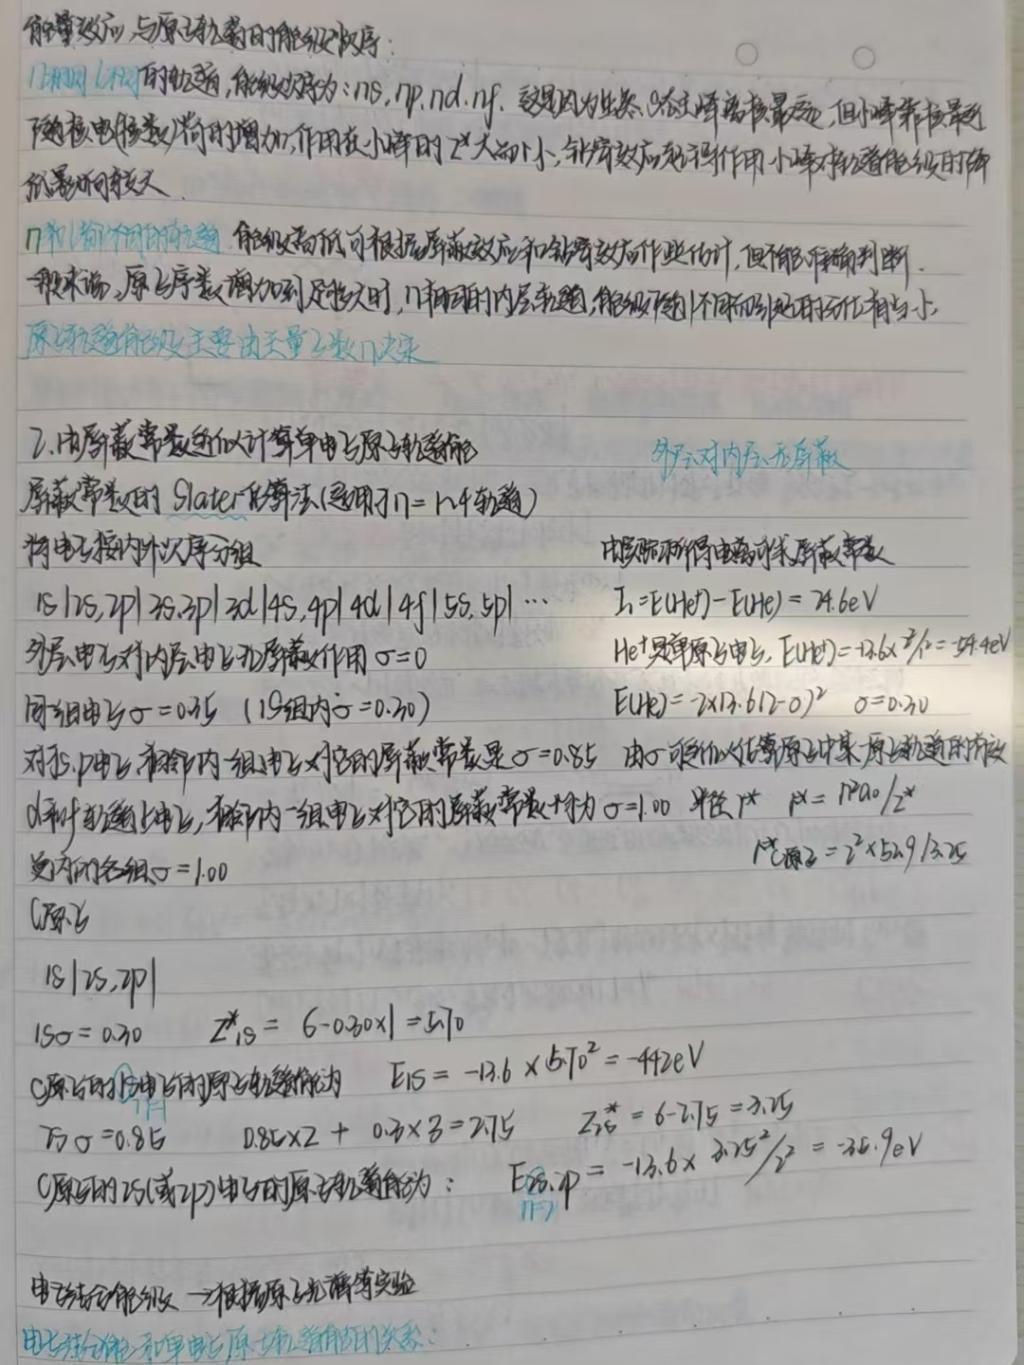 能量效应,与原子轨道的能级顺序:
n相同l不同的轨道,能级次序为:ns,np,nd,nf. 这是因为虽然s态主峰离核最远,但小峰靠核最近
随核电(核数)荷的增加,作用在小峰的Z*大而σ小,钻穿效应起得作用,小峰对轨道能级的降
低影响较大
n和l都不同的轨道 能级高低可根据屏蔽效应和钻穿效应作些估计,但不能准确判断.
一般来说,原子序数增加到足够大时,n相同的内层轨道,能级随l不同而引起的分化相当小,
原子轨道能级主要由主量子数n决定
2.由屏蔽常数近似计算单电子原子轨道能 外层对内层无屏蔽
屏蔽常数的 Slater估算法(适用于n=1~4轨道)
将电子按内外次序分组 由实验所得电离可求屏蔽常数
1s|2s,2p|3s,3p|3d|4s,4p|4d|4f|5s,5p|… I₁=E(He⁺)-E(He)=24.6eV
外层电子对内层电子无屏蔽作用 σ=0 He⁺是单原子电子, E(He⁺)=-13.6×2²/1²=-54.4eV
同一组电子σ=0.35 (1S组内σ=0.30) E(He)=-2×13.6(2-σ)² σ=0.30
对于s,p电子,相邻内一组电子对它的屏蔽常数是σ=0.85 由σ可近似估算原子中某一原子轨道的有效
d和f轨道上电子,相邻内一组电子对它的屏蔽常数均为σ=1.00 半径r* r*=n²a₀/Z*
更内的各组σ=1.00 r*C原子=2²×52.9/3.25
C原子
1s|2s,2p|
1sσ=0.30 Z*1s= 6-0.30×1=5.70
C原子的1s电子的原子轨道能为 E1s=-13.6×5.70²=-442eV
n=1
2sσ=0.85 0.85×2+0.3×3=2.75 Z*2s=6-2.75=3.25
C原子的2s(或2p)电子的原子轨道能为: E2s,2p=-13.6×3.25²/2²=-35.9eV
n=2
电子结合能级→根据原子光谱等实验
电子结合能和单电子原子轨道能的关系: